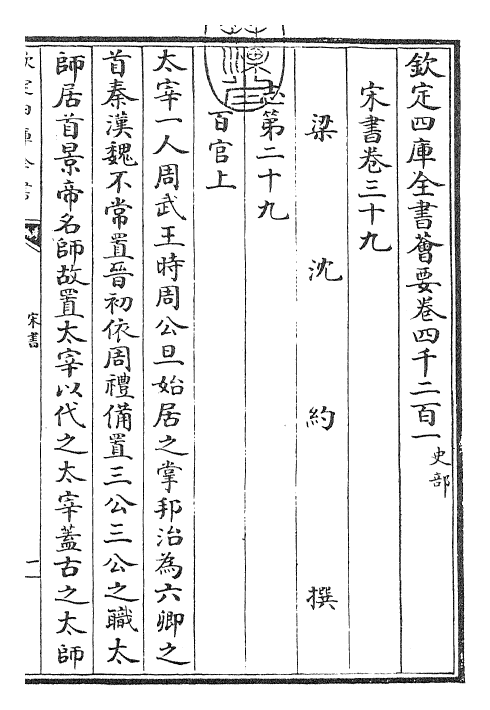 欽定四庫全書薈要卷四千二百一 史部
宋書卷三十九
梁 沈 約 撰
志第二十九
百官上
太宰一人周武王時周公旦始居之掌邦治為六卿之
首秦漢魏不常置晉初依周禮備置三公三公之職太
師居首景帝名師故置太宰以代之太宰蓋古之太師
宋書
一